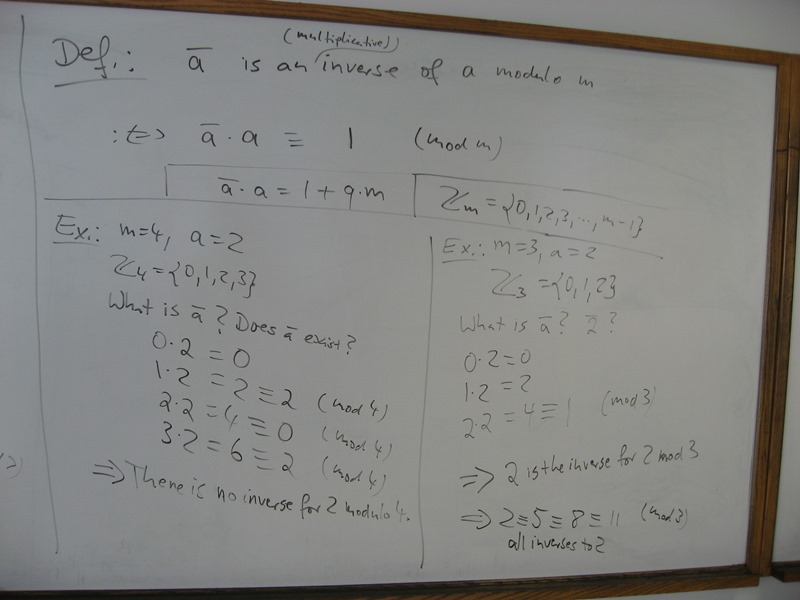 (multiplicative)
Def.: ā is an inverse of a modulo m
:⇔ ā · a ≡ 1 (mod m)
ā · a = 1 + q · m
ℤm = {0, 1, 2, 3, ..., m-1}
Ex.: m=4, a=2
ℤ4 = {0, 1, 2, 3}
What is ā? Does ā exist?
0·2 = 0
1·2 = 2 ≡ 2 (mod 4)
2·2 = 4 ≡ 0 (mod 4)
3·2 = 6 ≡ 2 (mod 4)
⇒ There is no inverse for 2 modulo 4.
Ex.: m=3, a=2
ℤ3 = {0, 1, 2}
What is ā? 2̄?
0·2=0
1·2 = 2
2·2 = 4 ≡ 1 (mod 3)
⇒ 2 is the inverse for 2 mod 3
⇒ 2 ≡ 5 ≡ 8 ≡ 11 (mod 3)
all inverses to 2